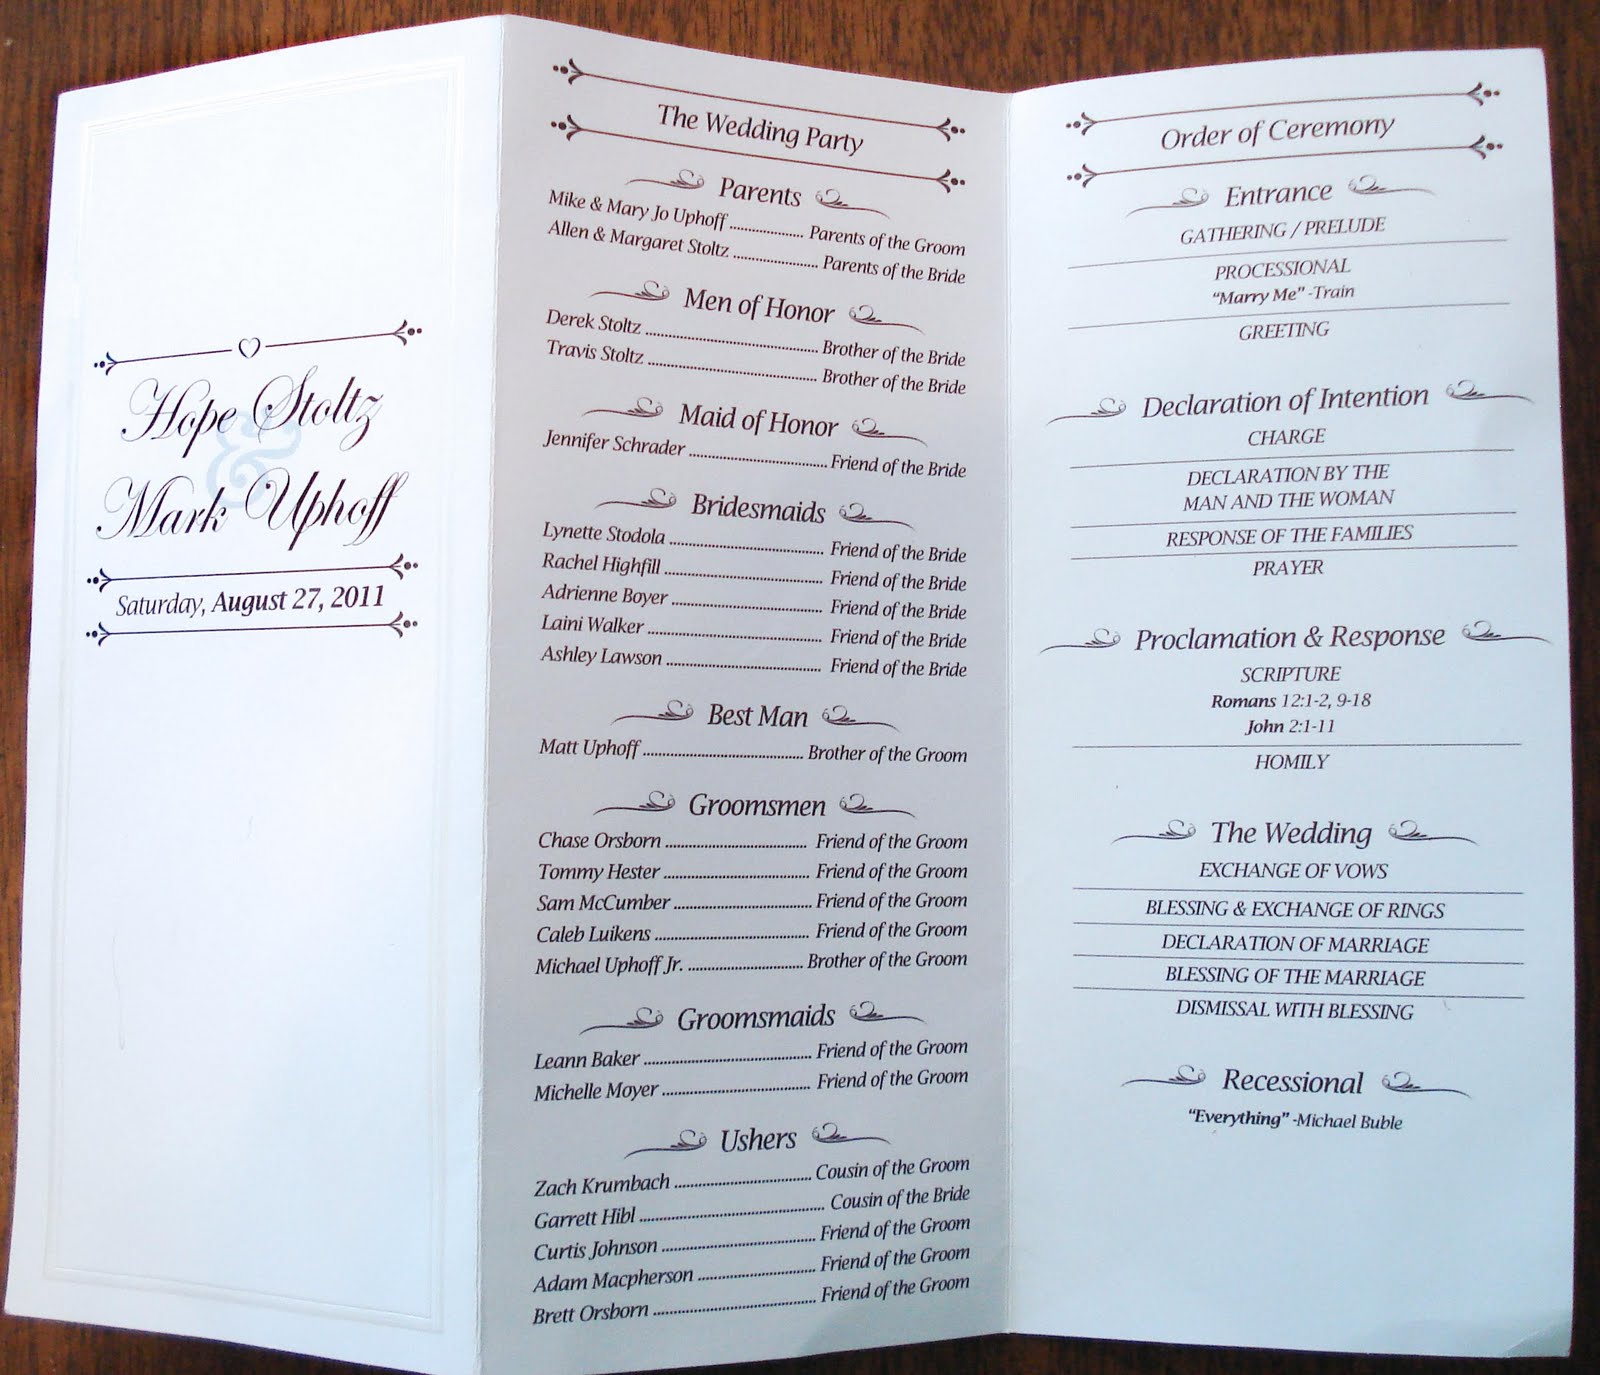 Hope Stoltz
&
Mark Uphoff
Saturday, August 27, 2011
The Wedding Party
Parents
Mike & Mary Jo Uphoff .................. Parents of the Groom
Allen & Margaret Stoltz .................. Parents of the Bride
Men of Honor
Derek Stoltz .................. Brother of the Bride
Travis Stoltz .................. Brother of the Bride
Maid of Honor
Jennifer Schrader .................. Friend of the Bride
Bridesmaids
Lynette Stodola .................. Friend of the Bride
Rachel Highfill .................. Friend of the Bride
Adrienne Boyer .................. Friend of the Bride
Laini Walker .................. Friend of the Bride
Ashley Lawson .................. Friend of the Bride
Best Man
Matt Uphoff .................. Brother of the Groom
Groomsmen
Chase Orsborn .................. Friend of the Groom
Tommy Hester .................. Friend of the Groom
Sam McCumber .................. Friend of the Groom
Caleb Luikens .................. Friend of the Groom
Michael Uphoff Jr. .................. Brother of the Groom
Groomsmaids
Leann Baker .................. Friend of the Groom
Michelle Moyer .................. Friend of the Groom
Ushers
Zach Krumbach .................. Cousin of the Groom
Garrett Hibl .................. Cousin of the Bride
Curtis Johnson .................. Friend of the Groom
Adam Macpherson .................. Friend of the Groom
Brett Orsborn .................. Friend of the Groom
Order of Ceremony
Entrance
GATHERING / PRELUDE
PROCESSIONAL
“Marry Me” -Train
GREETING
Declaration of Intention
CHARGE
DECLARATION BY THE
MAN AND THE WOMAN
RESPONSE OF THE FAMILIES
PRAYER
Proclamation & Response
SCRIPTURE
Romans 12:1-2, 9-18
John 2:1-11
HOMILY
The Wedding
EXCHANGE OF VOWS
BLESSING & EXCHANGE OF RINGS
DECLARATION OF MARRIAGE
BLESSING OF THE MARRIAGE
DISMISSAL WITH BLESSING
Recessional
“Everything” -Michael Buble